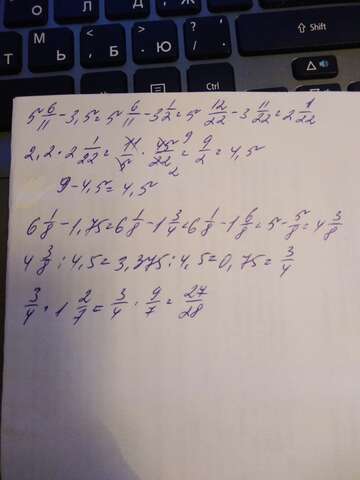 Ь Б Ю ⇧ Shift
Ctrl
5 6/11 - 3,5 = 5 6/11 - 3 1/2 = 5 12/22 - 3 11/22 = 2 1/22
2,2 · 2 1/22 = 11/5 · 45/22 = 9/2 = 4,5
9 - 4,5 = 4,5
6 1/8 - 1,75 = 6 1/8 - 1 3/4 = 6 1/8 - 1 6/8 = 5 - 5/8 = 4 3/8
4 3/8 : 4,5 = 3,375 : 4,5 = 0,75 = 3/4
3/4 · 1 2/7 = 3/4 · 9/7 = 27/28